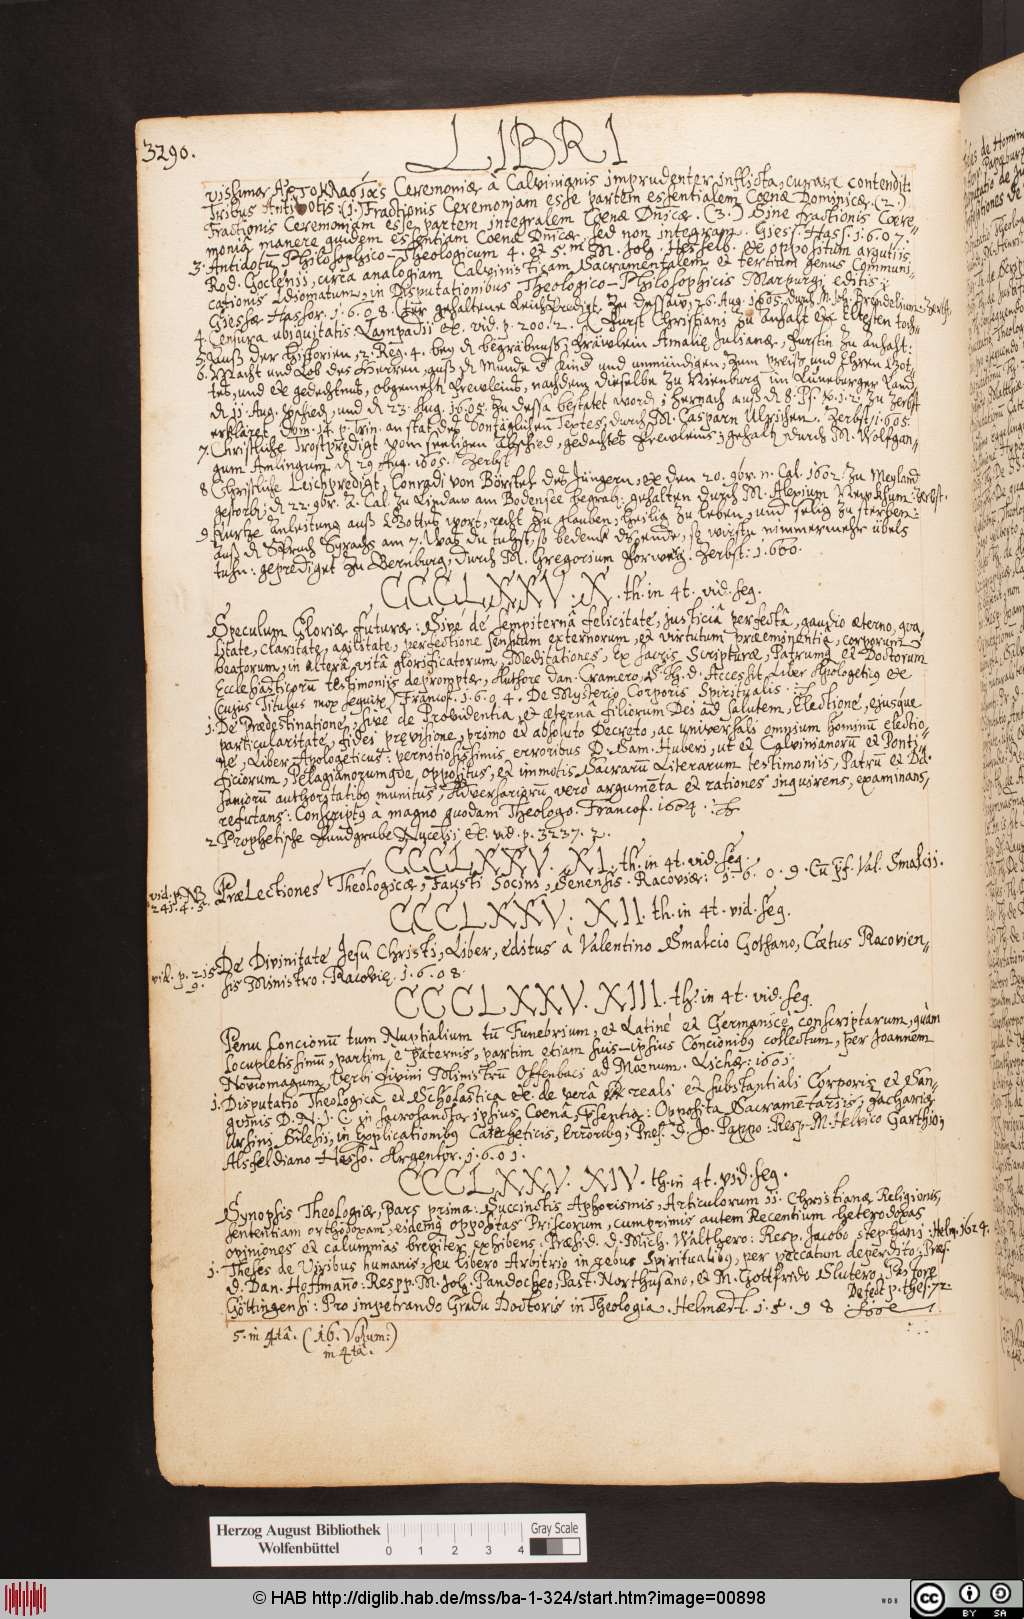 3290.
LIBRI
Ceremoniæ a Calvinianis imprudenter inflicta, curare contendit:
Tribus Antidotis: (1.) Fractionis Ceremoniam esse partem essentialem Coenæ Dominicæ. (2.)
Fractionis Ceremoniam esse partem integralem Coenæ Dnicæ. (3.) Sine fractionis Cære-
monia manere quidem essentiam Coenæ Dnicæ, sed non integram. Giess. Hass. 1.6.07.
3. Antidotū Philosophico-Theologicum 4. et 5. M. Joh. Hesselb. ex oppositum argutiis
Rod. Goclenii, circa analogiam Calvinisticam Sacramentalem et tertium genus Communi-
cationis Idiomatum, in Disputationibus Theologico-Philosophicis Marpurgi editis:
Giessæ Hassor. 1.6.08.
4. Censura ubiquitatis Lampadii etc. vid. p. 200. 2.
5. Auß der Historien, 2. Reg. 4. bey d begräbnuß, Fräwlein Amalię Julianæ, Fürstin zu Anhalt:
6. Macht und Lob des Herren, auß d Munde d Kind und unmündigen, zum Preiß und Ehren Got-
tes, und gedechtnus, nachdem dieselbe zu Nienburg im Lüneburger Land
d 11. Aug. und d 23. Aug. 1605. zu Dessa bestatet word; hernach auß d 8. Ps. zu Zerbst
erkläret Dom. 14. p. Trin. an stat des Sontäglichen Textes, durch M. Casparn Ulrichen. Zerbst, 1605.
7. Christliche Trostpredigt vom seeligen Abschied, gedachtes Frewleins, gehalt durch M. Wolfgan-
gum Amlingum d 29. Aug. 1605. Zerbst
8. Christliche Leichpredigt, Conradi von Börstel des Jüngern, den 20. 9br. n. Cal. 1602. zu Meyland
gestorb, d 22. 9br. a. Cal. zu Lindaw am Bodensee begrab: gehalten durch M. Zerbst.
9. Kurtze anleitung auß Gottes wort, recht zu glauben, heilig zu leben, und selig zu sterben:
auß d Spruch Syrachs am 7. Was du tuhst, so bedenk dz ende, so wirstu nimmermehr übels
tuhn: geprediget zu Bernburg, durch M. Gregorium Zerbst: 1.600.
CCCLXXV. X. th. in 4t. vid. seq.
Speculum Gloriæ futuræ: Sive de Sempiternâ felicitate, justiciâ perfectâ, gaudio æterno, qua-
litate, claritate, agilitate, perfectione sensuum externorum, et virtutum præeminentia, corporum
beatorum, in alterâ vitâ glorificatorum, Meditationes, Ex sacris Scripturæ, Patrumq et Doctorum
Ecclesiasticorū testimoniis depromptæ, Authore Dan. Cramero, Accessit Liber Apologeticq etc
Cujus Titulus mox sequit. Francof. 1.6.04. De Mysterio Corporis Spiritualis.
1. De Prædestinatione, sive de Providentia, et æternâ filiorum Dei ad salutem, Electione, ejusque
particularitate, fidei prævisione, primo et absoluto Decreto, ac universali omnium hominū electio-
ne, Liber Apologeticus: perniciosissimis erroribus D. Sam. Huberi, ut et Calvinianorū et Ponti-
ficiorum, Pelagianorumque, oppositus, et immotis Sacrarū Literarum testimoniis, Patrū et
authoritatibq munitus, Adversariorū vero argumēta et rationes inquirens, examinans,
refutans: Conscriptq a magno quodam Theologo. Francof. 1604.
2. Prophetische Fundgrube Nycelii etc. vid. p. 3237. 2.
CCCLXXV. XI. th. in 4t. vid. seq.
vid. p. NB
241. 4. 5.
PræLectiones Theologicæ, Fausti Socini, Senensis. Racoviæ: 1.6.0.9. Cū pf. Val. Smalcii.
CCCLXXV. XII. th. in 4t. vid. seq.
vid. p. 215
9.
De Divinitate Jesu Christi, Liber, editus à Valentino Smalcio Gothano, Coetus Racovien-
sis Ministro. Racovię. 1.6.08.
CCCLXXV. XIII. th. in 4t. vid. seq.
Penu Concionū tum Nuptialium tū Funebrium, et Latinè et Germanicè conscriptarum, quàm
locupletissimū, partim è Paternis, partim etiam suis-ipsius Concionibq collectum, per Joannem
Noviomagum, Verbi divini Ministrū Offenbaci ad Moenum. Lichæ: 1601.
1. Disputatio Theologica et Scholastica etc. de verâ reali et substantiali Corporis et San-
guinis D. N. J. C. in sacrosanctâ ipsius Coenâ, Præsentia: Opposita Sacramētariis, Zachariæ
Ursini Silesii, in explicationibq Catecheticis, Erroribq, Præs. D. Jo. Pappo: Resp. M. Helvico Garthio,
Alsfeldiano-Hesso. Argentor. 1.6.01.
CCCLXXV. XIV. th. in 4t. vid. seq.
Synopsis Theologiæ, Pars prima: Succinctis Aphorismis, Articulorum 11. Christianæ Religionis,
sententiam orthodoxam, eidemq oppositas Priscorum, cumprimis autem Recentium Heterodoxas
opiniones et calumnias breviter exhibens. Præsid. D. Mich. Walthero: Resp. Jacobo Stephani: Helm. 1624.
1. Theses de Viribus humanis, seu libero Arbitrio in rebus Spiritualibq, per peccatum deperdito: Præs.
D. Dan. Hoffmano: Respp. M. Joh. Pandocheo, Past. Northusano, et M. Gottfrido Slutero, Pastore
Defect p. thes. 72
Göttingensi: Pro impetrando Gradu Doctoris in Theologia. Helmæst. 1.5.98
5. in 4tâ. (16. Volum:)
in 4tâ.
Herzog August Bibliothek
Wolfenbüttel
0 1 2 3 4
Gray Scale
© HAB http://diglib.hab.de/mss/ba-1-324/start.htm?image=00898
WDB
CC BY SA